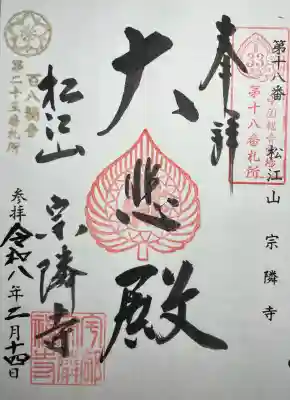 第十八番 松江山 宗隣寺
33
中国観音霊場
第十八番札所
奉拝
大悲殿
松江山 宗隣寺
百八観音
第二十五番札所
参拝 令和八年二月十四日